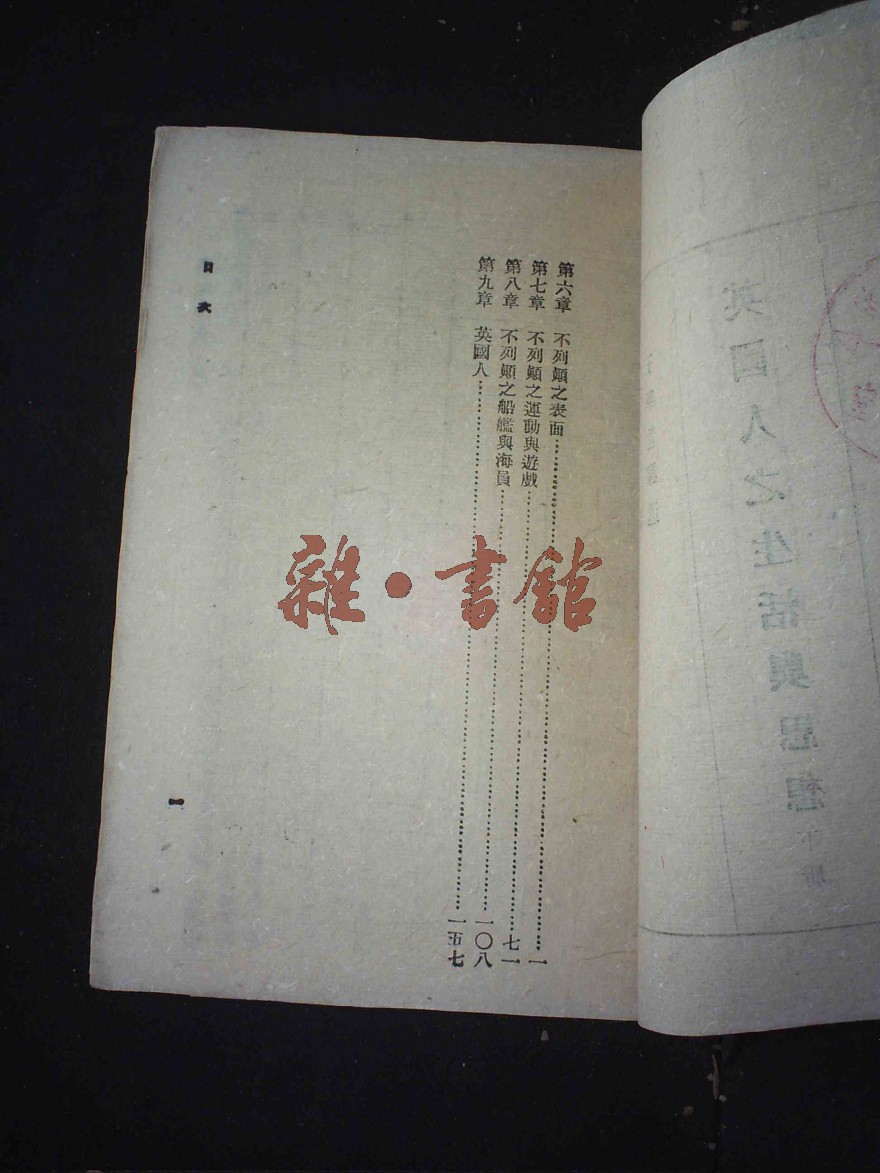 英國人之生活與思想
下册
第六章 不列顛之表面……一
第七章 不列顛之運動與遊戲……七一
第八章 不列顛之船艦與海員……一〇八
第九章 英國人……一五七
目次
一
雜·書館